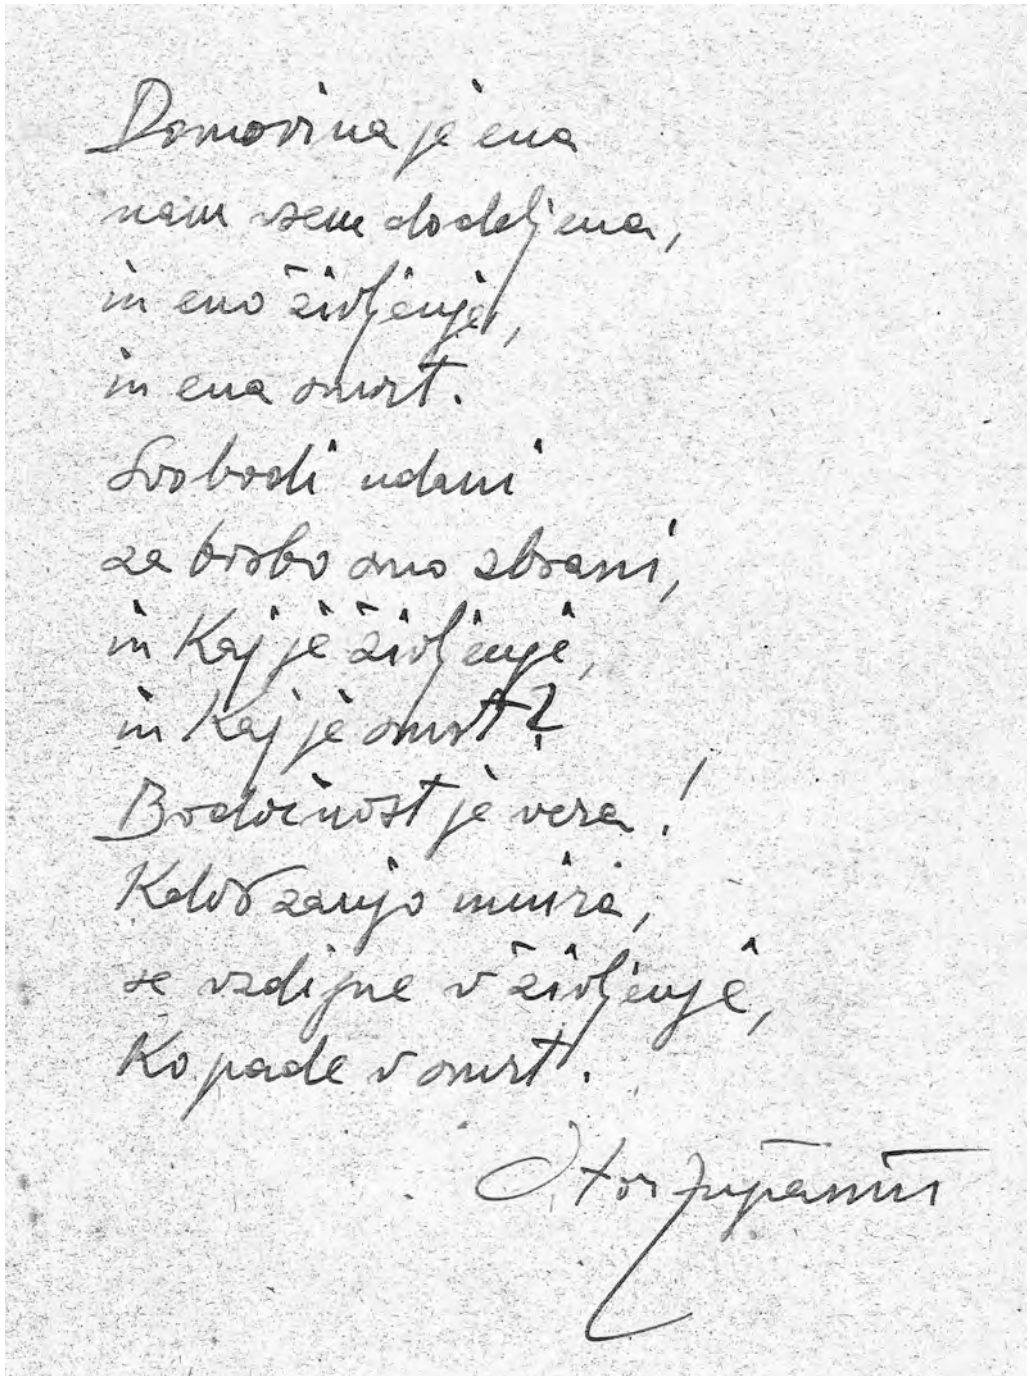 Domovina je ena
nam vsem dodeljena,
in eno življenje,
in ena smrt.
Svobodi udani
za borbo smo zbrani,
in kaj je življenje,
in kaj je smrt?
Bodočnost je vera!
Kdor zanjo umira,
se vzdigne v življenje,
ko pade v smrt.
Oton Župančič